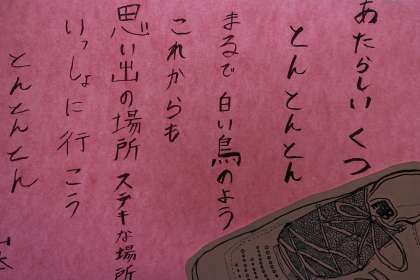 あたらしいくつ
とんとんとん
まるで白い鳥のよう
これからも
思い出の場所 ステキな場所
いっしょに行こう
とんとんとん